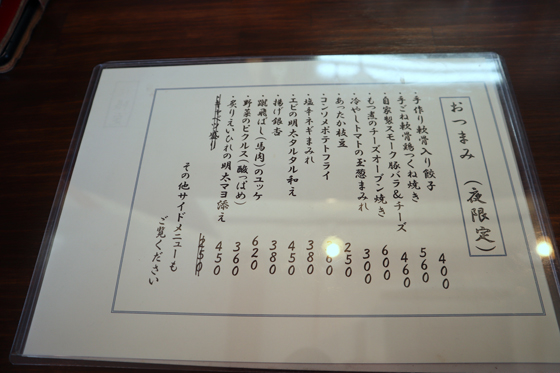 おつまみ (夜限定)
・手作り軟骨入り餃子 400
・手ごね軟骨鶏つくね焼き 560
・自家製スモーク豚バラ&チーズ 460
・もつ煮のチーズオーブン焼き 600
・冷やしトマトの玉葱まみれ 300
・あったか枝豆 250
・コンソメポテトフライ
・塩辛ネギまみれ 380
・エビの明太タルタル和え 450
・揚げ銀杏 380
・蹴飛ばし(馬肉)のユッケ 620
・野菜のピクルス(酸っぱめ) 360
・炙りえいひれの明太マヨ添え 450
250
その他サイドメニューも
ご覧ください